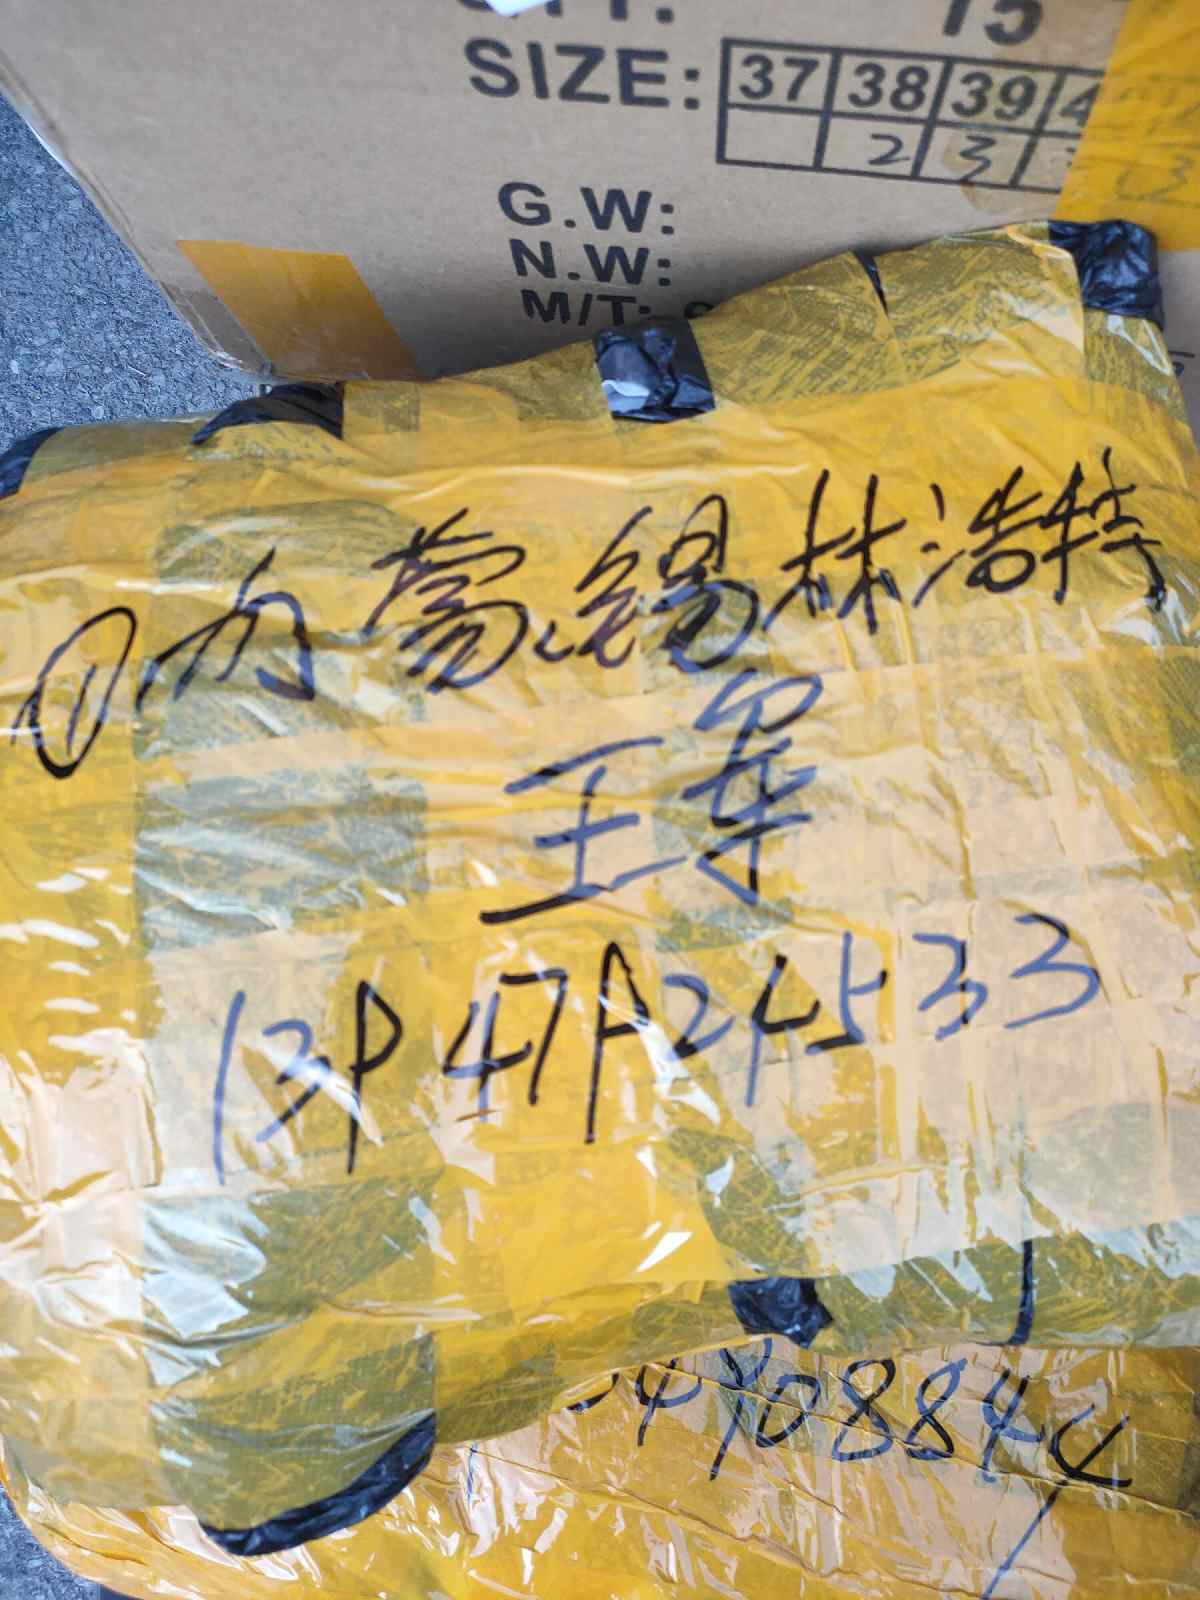 15
SIZE: 37 38 39
2 3
G.W:
N.W:
M/T:
① 内蒙 锡林浩特
王军
13947924533
4908844